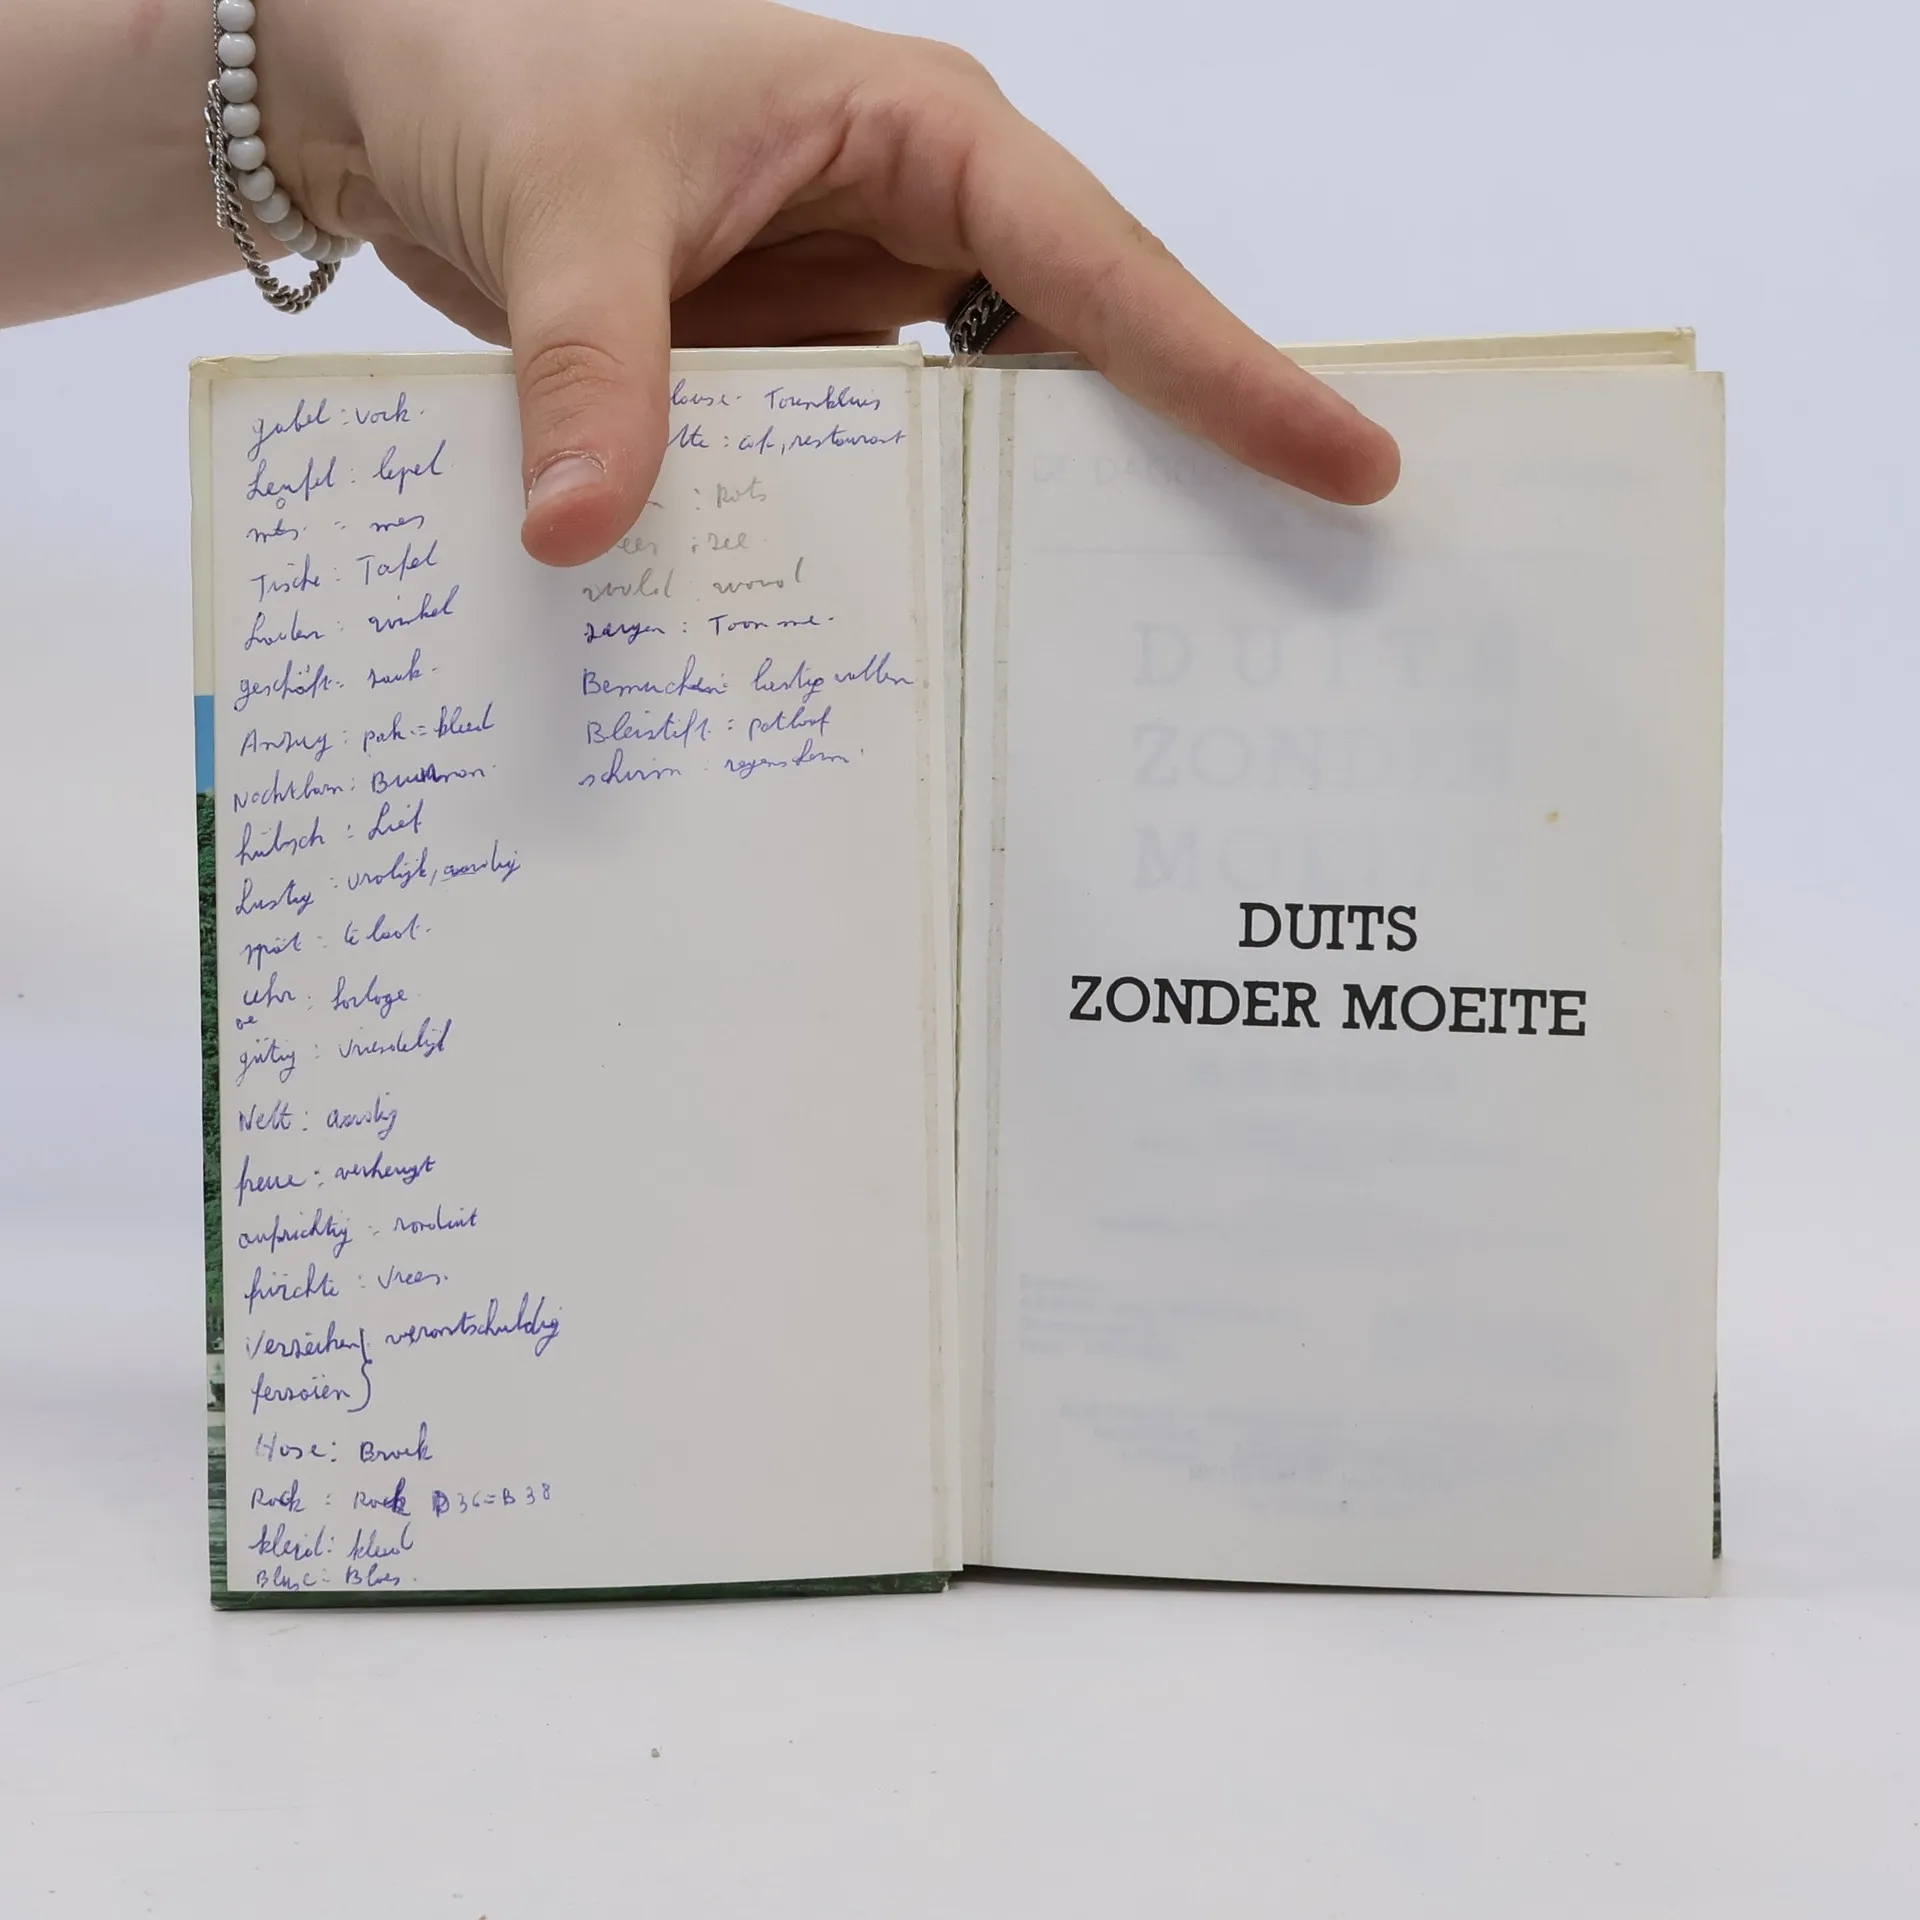 gabel : vork.
Leufel : lepel
mes = mes
Tische : Tafel
Laden : winkel
geschäft = zaak.
Anzug : pak = kleed
Nachtbam : Buurman.
hübsch : Lief
Lustig : vrolijk, aardig
spät : te laat.
uhr : horloge.
oe
gütig : vriendelijk
Nett : aardig
freue : verheugt
aufrichtig :
fürchte : vrees.
Verzeihen verontschuldig
ferzaien
Hose : Broek
Rock : Rock D 36 = B 38
kleid : kleed
Bluse = Bloes.
lause.
tte : café, restaurant
: Rots
eer : zee
wald : woud
zeigen : Toon me.
lastig vallen
Bleistift : potlood
schirm : regenscherm.
DUITS
ZONDER
MOEITE
DUITS
ZONDER MOEITE